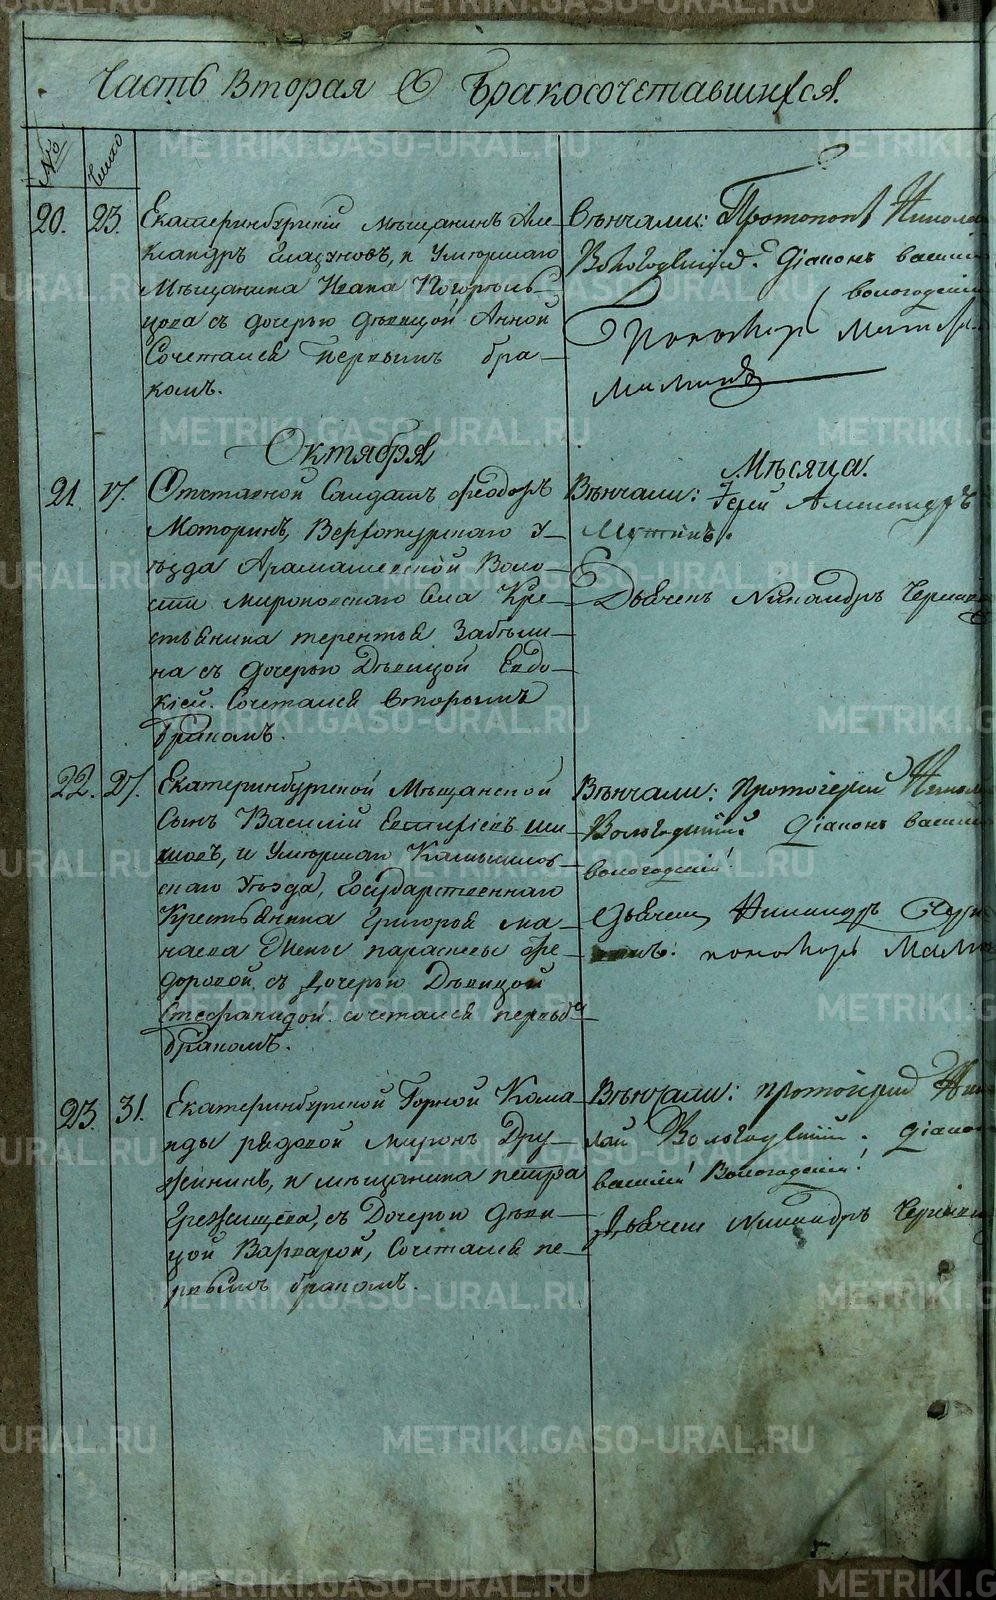 Часть Вторая О Бракосочетавшихся.
№ Число
20. 23. Екатеринбургскій мѣщанинъ Але
ксандръ Глазуновъ, и Умершаго
Мѣщанина Ивана Погорѣль
цова съ дочерью дѣвицой Анной
Сочетался первымъ бра
комъ.
Вѣнчали: Протопопъ Никола
Вологодский. Діаконъ васили
вологодскій
Пономарь
Октября
Мѣсяца.
21. 17. Отставной Салдатъ феодоръ
Моторинъ, Верхотурскаго у
ѣзда Арамашевской Воло
сти мироновскаго села Кре
стьянина терентья Забѣли
на съ дочерью Дѣвицой Евдо
кіей. Сочетался вторымъ
бракомъ.
Вѣнчали: Іерей Александръ
Дьячекъ Никандръ
22. 27. Екатеринбургской Мѣщанской
Сынъ Василій Евтифіевъ ши
шовъ, и Умершаго Камышлов
скаго Уѣзда, Государственнаго
Крестьянина Григорья ма
наева Жены параскевы фе
доровой, съ дочерью Дѣвицой
Стефанидой сочетался первы
бракомъ.
Вѣнчали: протоіерей Никола
Вологодский Діаконъ васили
вологодскій
дьячекъ Никандръ
пономарь
23. 31. Екатеринбургской Горной Кома
нды рядовой миронъ Дру
жининъ, и мѣщанина петра
Грезжищева, съ Дочерью дѣви
цой Варварой, Сочетался пе
рвымъ бракомъ.
Вѣнчали: протоіерей Нико
лай Вологодский. Діакон
василій Вологодскій
Дьячекъ Никандръ
METRIKI.GASO-URAL.RU